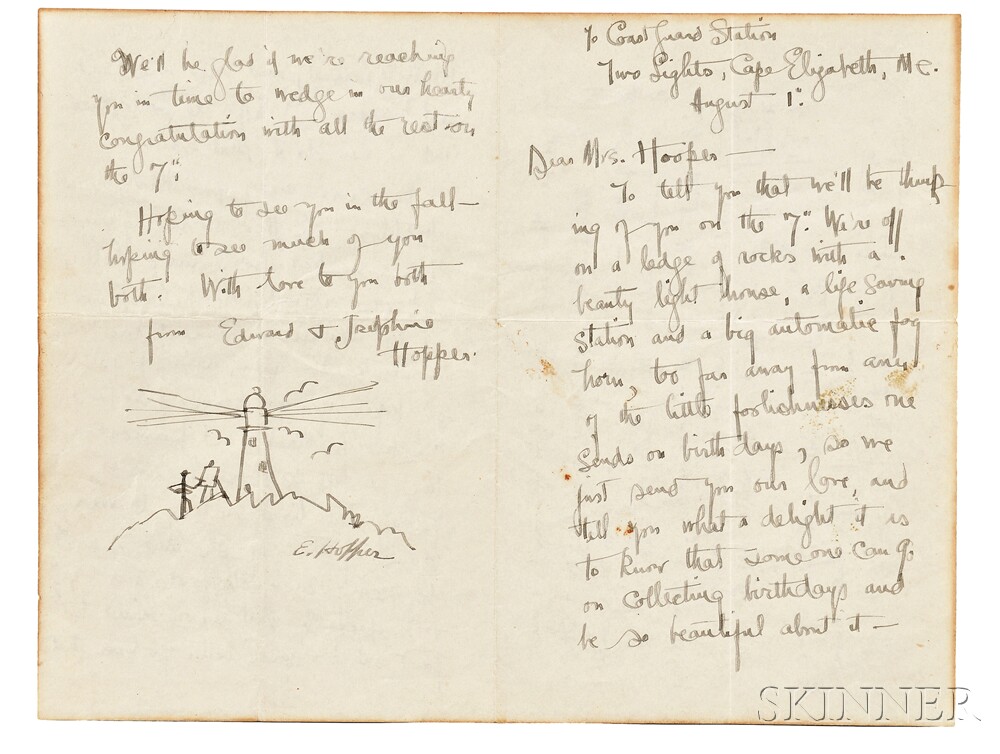 To Coast Guard Station
Two Lights, Cape Elizabeth, Me.
August 1.
Dear Mrs. Hooper —
To tell you that we'll be think
ing of you on the 7". We're off
on a ledge of rocks with a
beauty light house, a life saving
station and a big automatic fog
horn, too far away from any
of the little foolishnesses one
sends on birthdays, so we
just send you our love, and
tell you what a delight it is
to know that someone can go
on collecting birthdays and
be so beautiful about it —
We'll be glad if we're reaching
you in time to wedge in our hearty
congratulation with all the rest on
the 7".
Hoping to see you in the fall —
hoping to see much of you
both. With love to you both
from Edward & Josephine
Hopper.
E. Hopper
SKINNER